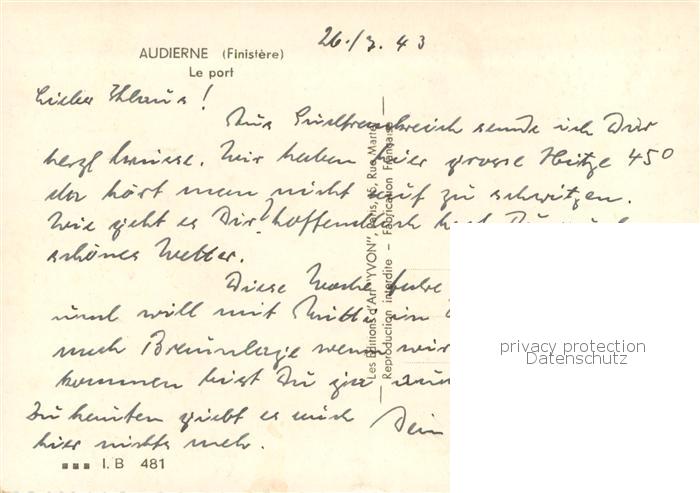 26./7. 43
AUDIERNE (Finistère)
Le port
Lieber Klaus!
Aus Südfrankreich sende ich Dir
herzl Grüsse. Wir haben hier grosse Hitze 45°
da hört man nicht auf zu schwitzen.
Wie geht es Dir? hoffentlich hast Du auch
schönes Wetter.
Diese Woche fahre
und will mit Mutti in
nach Braunlage wenn wir
kommen bist Du
Zu kaufen giebt es auch
hier nichts mehr.
Dein
Les Editions d'Art "YVON", Paris, 15, Rue Martel
Reproduction interdite - Fabrication Française
I. B 481
privacy protection
Datenschutz